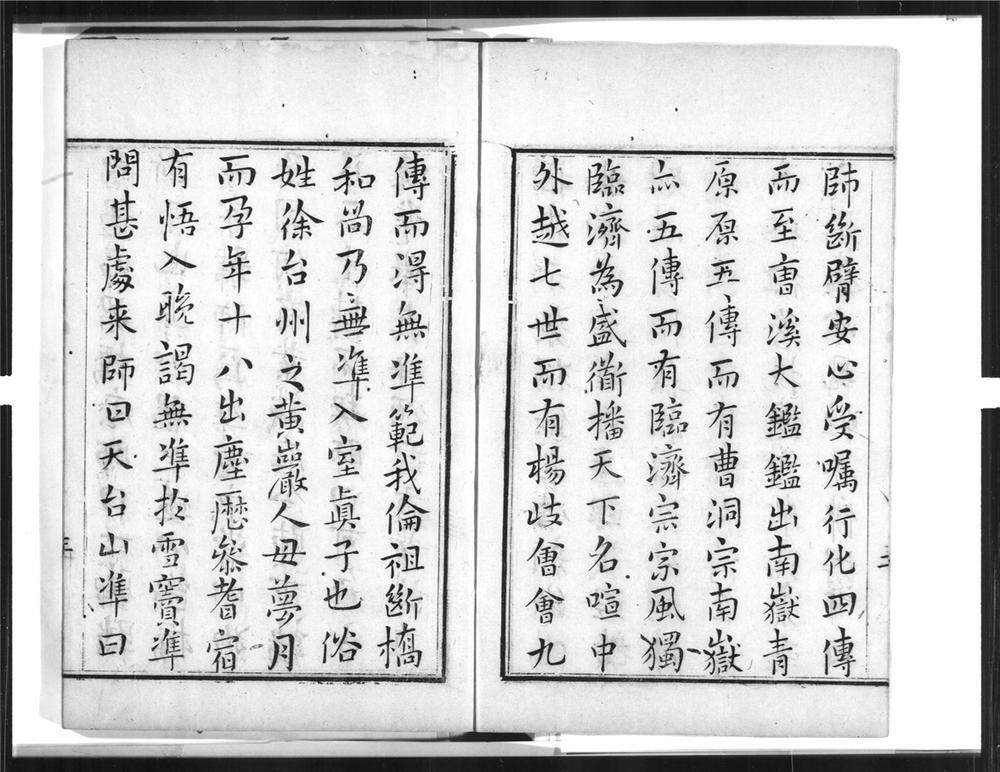 師斷臂安心受囑行化四傳
而至曺溪大鑑鑑出南嶽青
原原五傳而有曹洞宗南嶽
亦五傳而有臨濟宗宗風獨
臨濟為盛衜播天下名喧中
外越七世而有楊歧會會九
二
傳而淂無準範我倫祖斷橋
和尚乃無準入室真子也俗
姓徐台州之黄巖人母夢月
而孕年十八出塵歴叅耆宿
有悟入晚謁無準扵雪竇準
問甚處来師曰天台山準曰
三